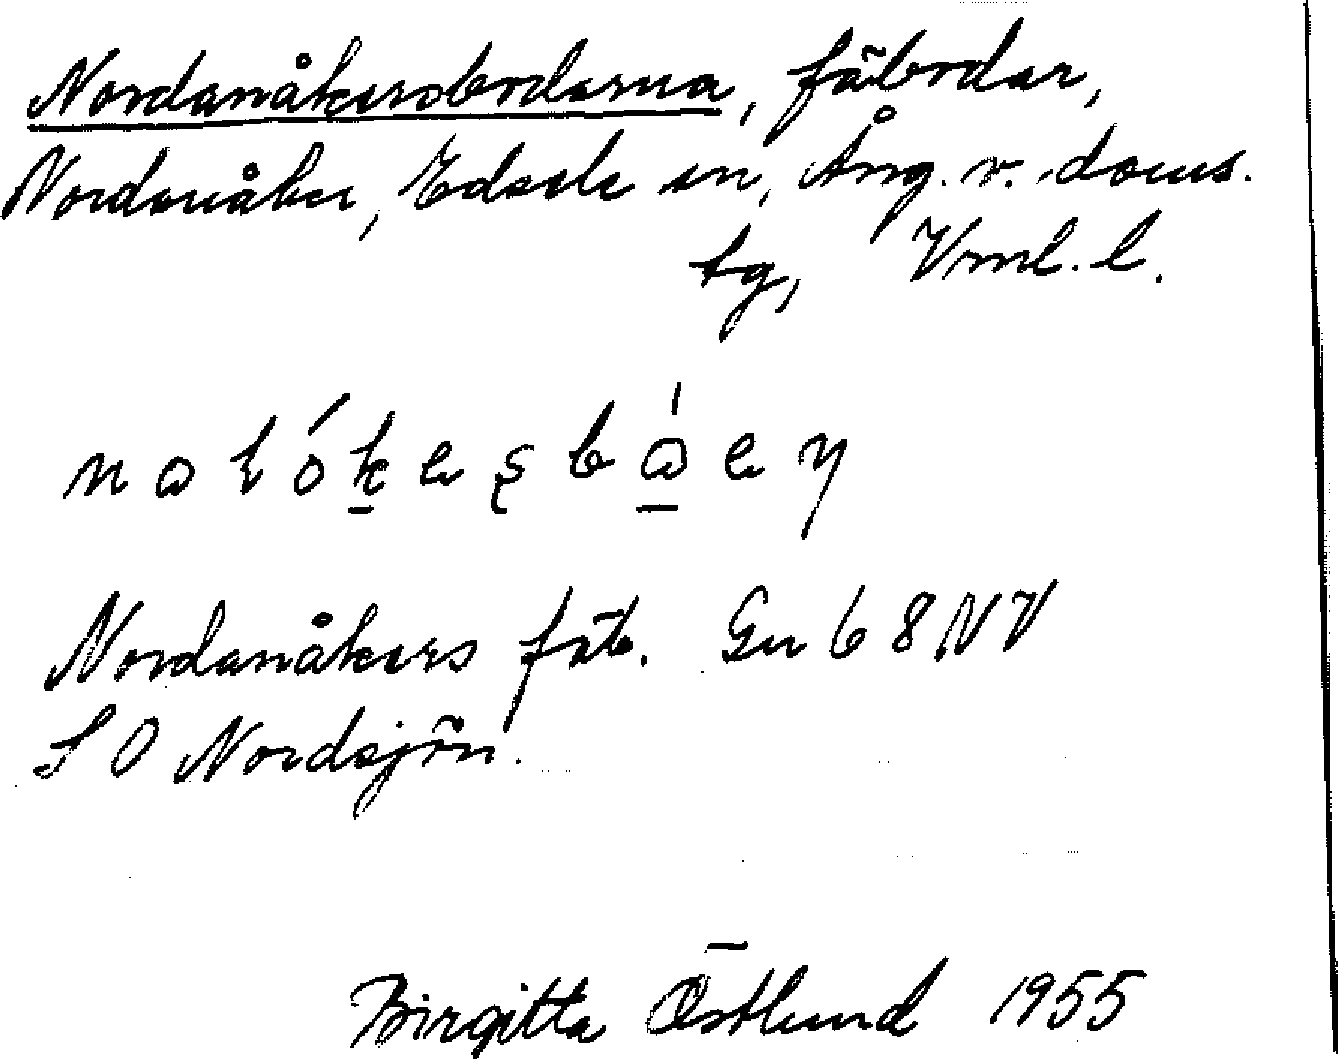 Nordanåkersbodarna, fäbodar,
Nordanåker, Edsele sn, Ång. v. doms.
tg, Vml. l.
Nordanåkers fäb. Gn 68 NV
S O Nordsjön.
Birgitta Östlund 1955